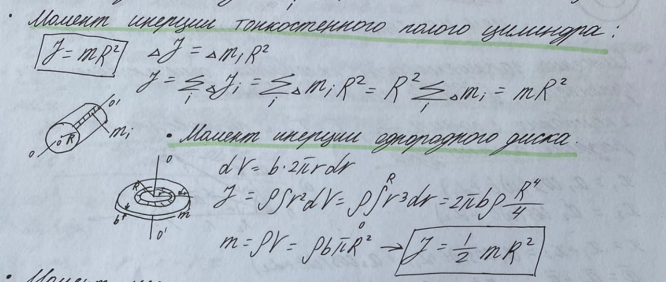 • Момент инерции тонкостенного полого цилиндра:
J = mR² ΔJ = Δmᵢ R²
J = Σᵢ ΔJᵢ = Σᵢ Δmᵢ R² = R² Σᵢ Δmᵢ = mR²
O'
R
mᵢ
O
• Момент инерции однородного диска.
dV = b · 2πrdr
J = ρ∫r²dV = ρ∫₀ᴿ r³dr = 2πbρ R⁴/4
m = ρV = ρbπR² → J = 1/2 mR²
O
R
b
m
O'